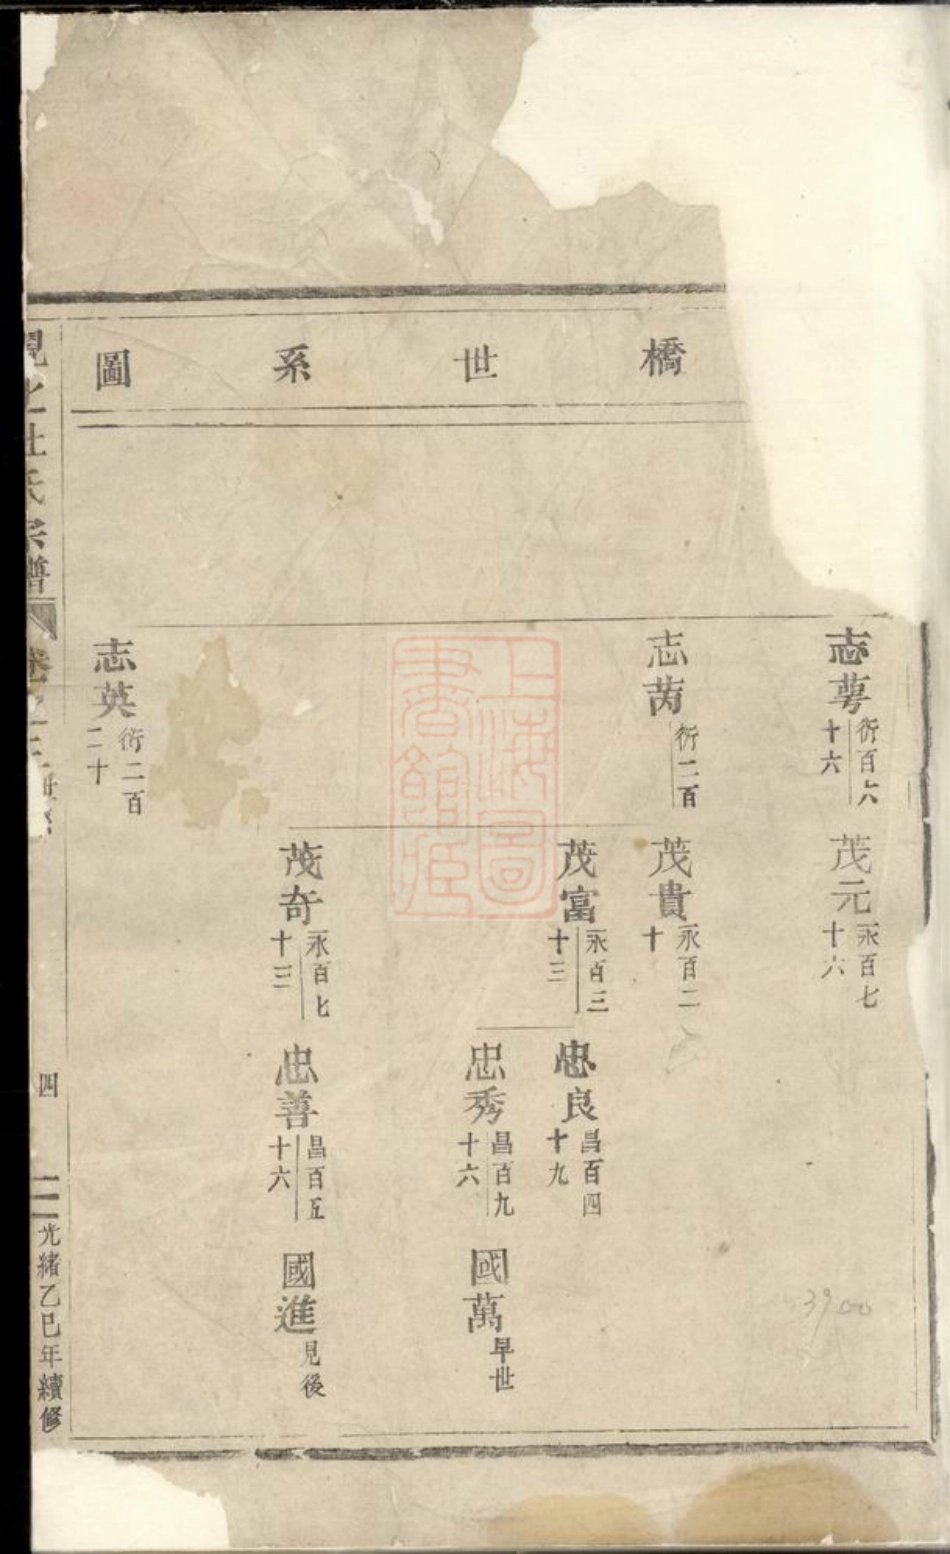 橋世系圖
志萼 衍百六十六
茂元 永百七十六
志芮 衍二百
茂貴 永百二十
茂富 永百三十三
忠良 昌百四十九
忠秀 昌百九十六
國萬 早世
茂奇 永百七十三
忠善 昌百五十六
國進 見後
志英 衍二百二十
杜氏宗譜
四
光緒乙巳年續修
上海圖書館藏
3900